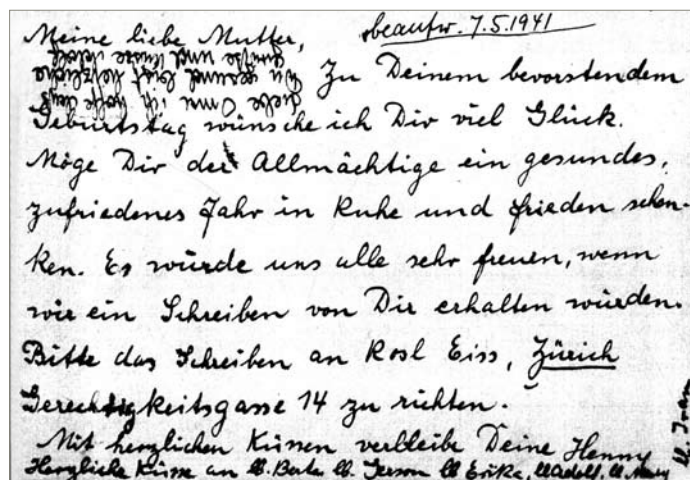 beantw. 7.5.1941
Meine liebe Mutter,
Liebe Oma ich hoffe dass
Du gesund bist herzliche
Grüße und
Zu Deinem bevorstendem
Geburtstag wünsche ich Dir viel Glück.
Möge Dir der Allmächtige ein gesundes,
zufriedenes Jahr in Ruhe und Frieden schen-
ken. Es würde uns alle sehr freuen, wenn
wir ein Schreiben von Dir erhalten würden.
Bitte das Schreiben an Rosl Eiss, Zürich
Gerechtigkeitsgasse 14 zu richten.
Mit herzlichen Küssen verbleibe Deine Henny
Herzliche Küsse an lb. Berta lb. Gerson lb Erika, lb Adolf, lb.